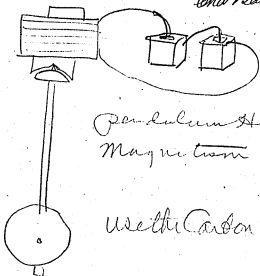 pendulum H
Magnetism
use the Carbon